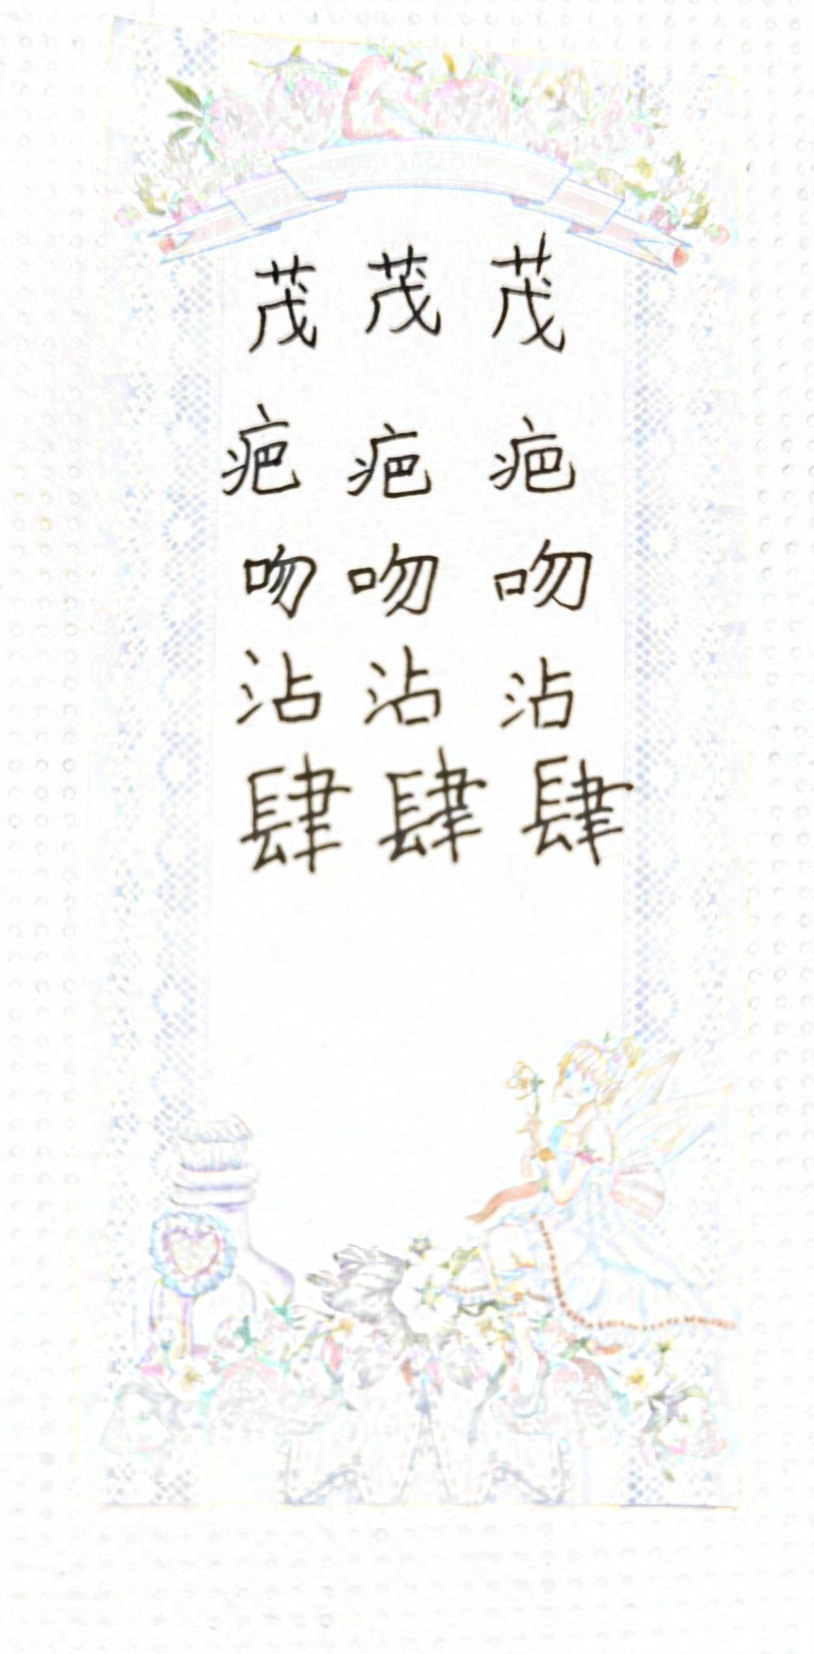 茂 茂 茂
疤 疤 疤
吻 吻 吻
沾 沾 沾
肆 肆 肆